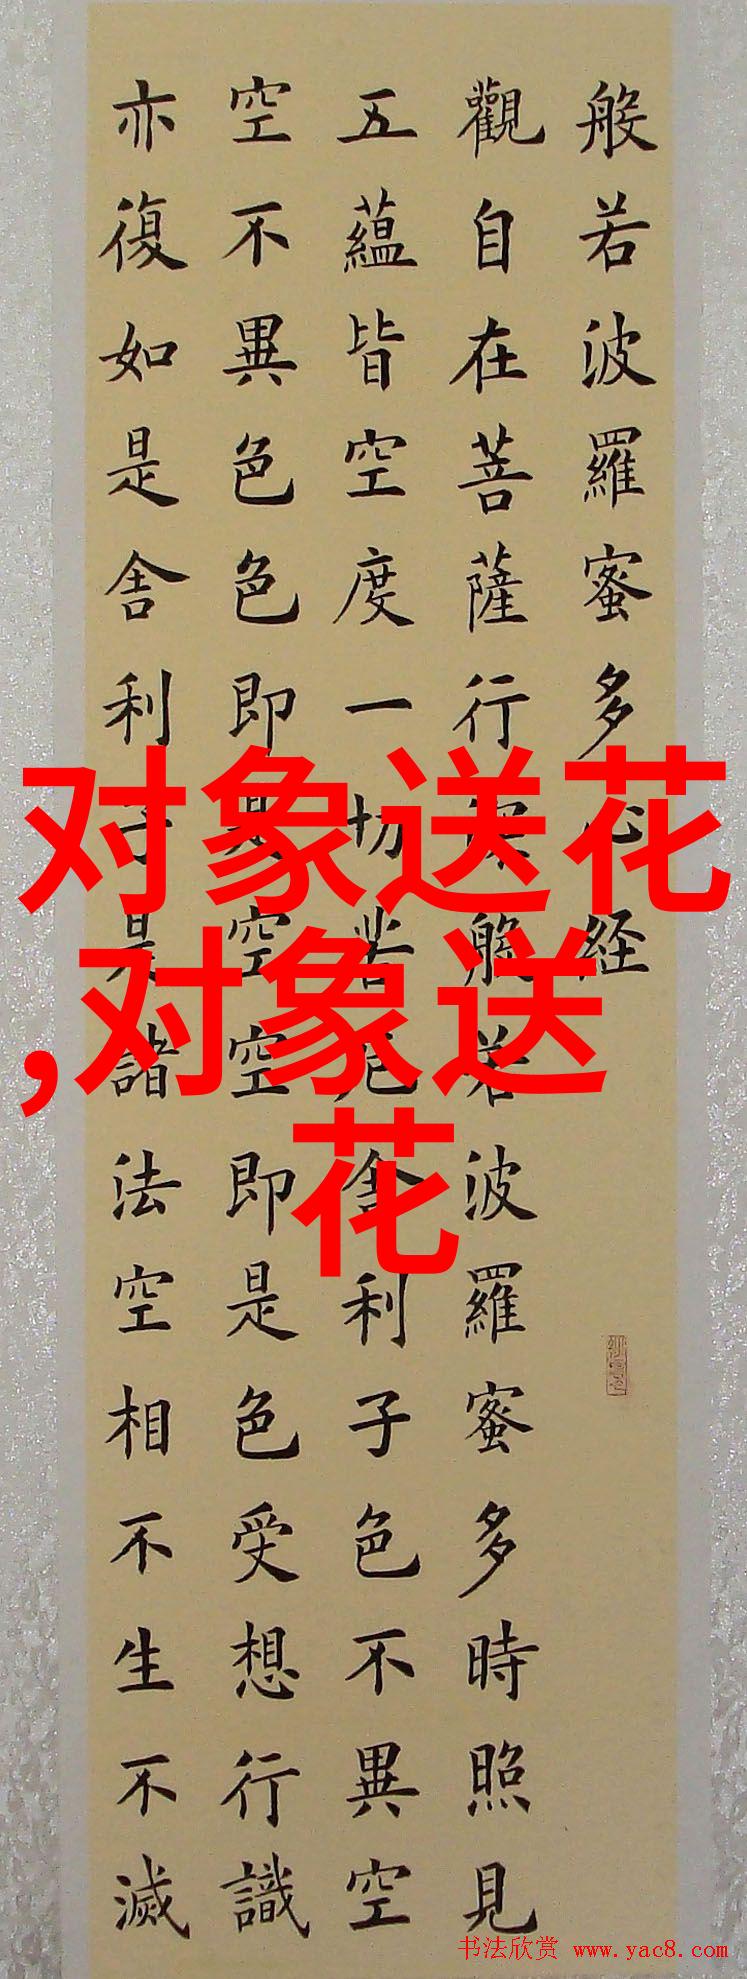 般若波羅蜜多心経
觀自在菩薩行深般若波羅蜜多時照見
五蘊皆空度一切苦厄舍利子色不異空
空不異色色即是空空即是色受想行識
亦復如是舍利子是諸法空相不生不滅
对象送花
,对象送
花
书法欣赏 www.yac8.com